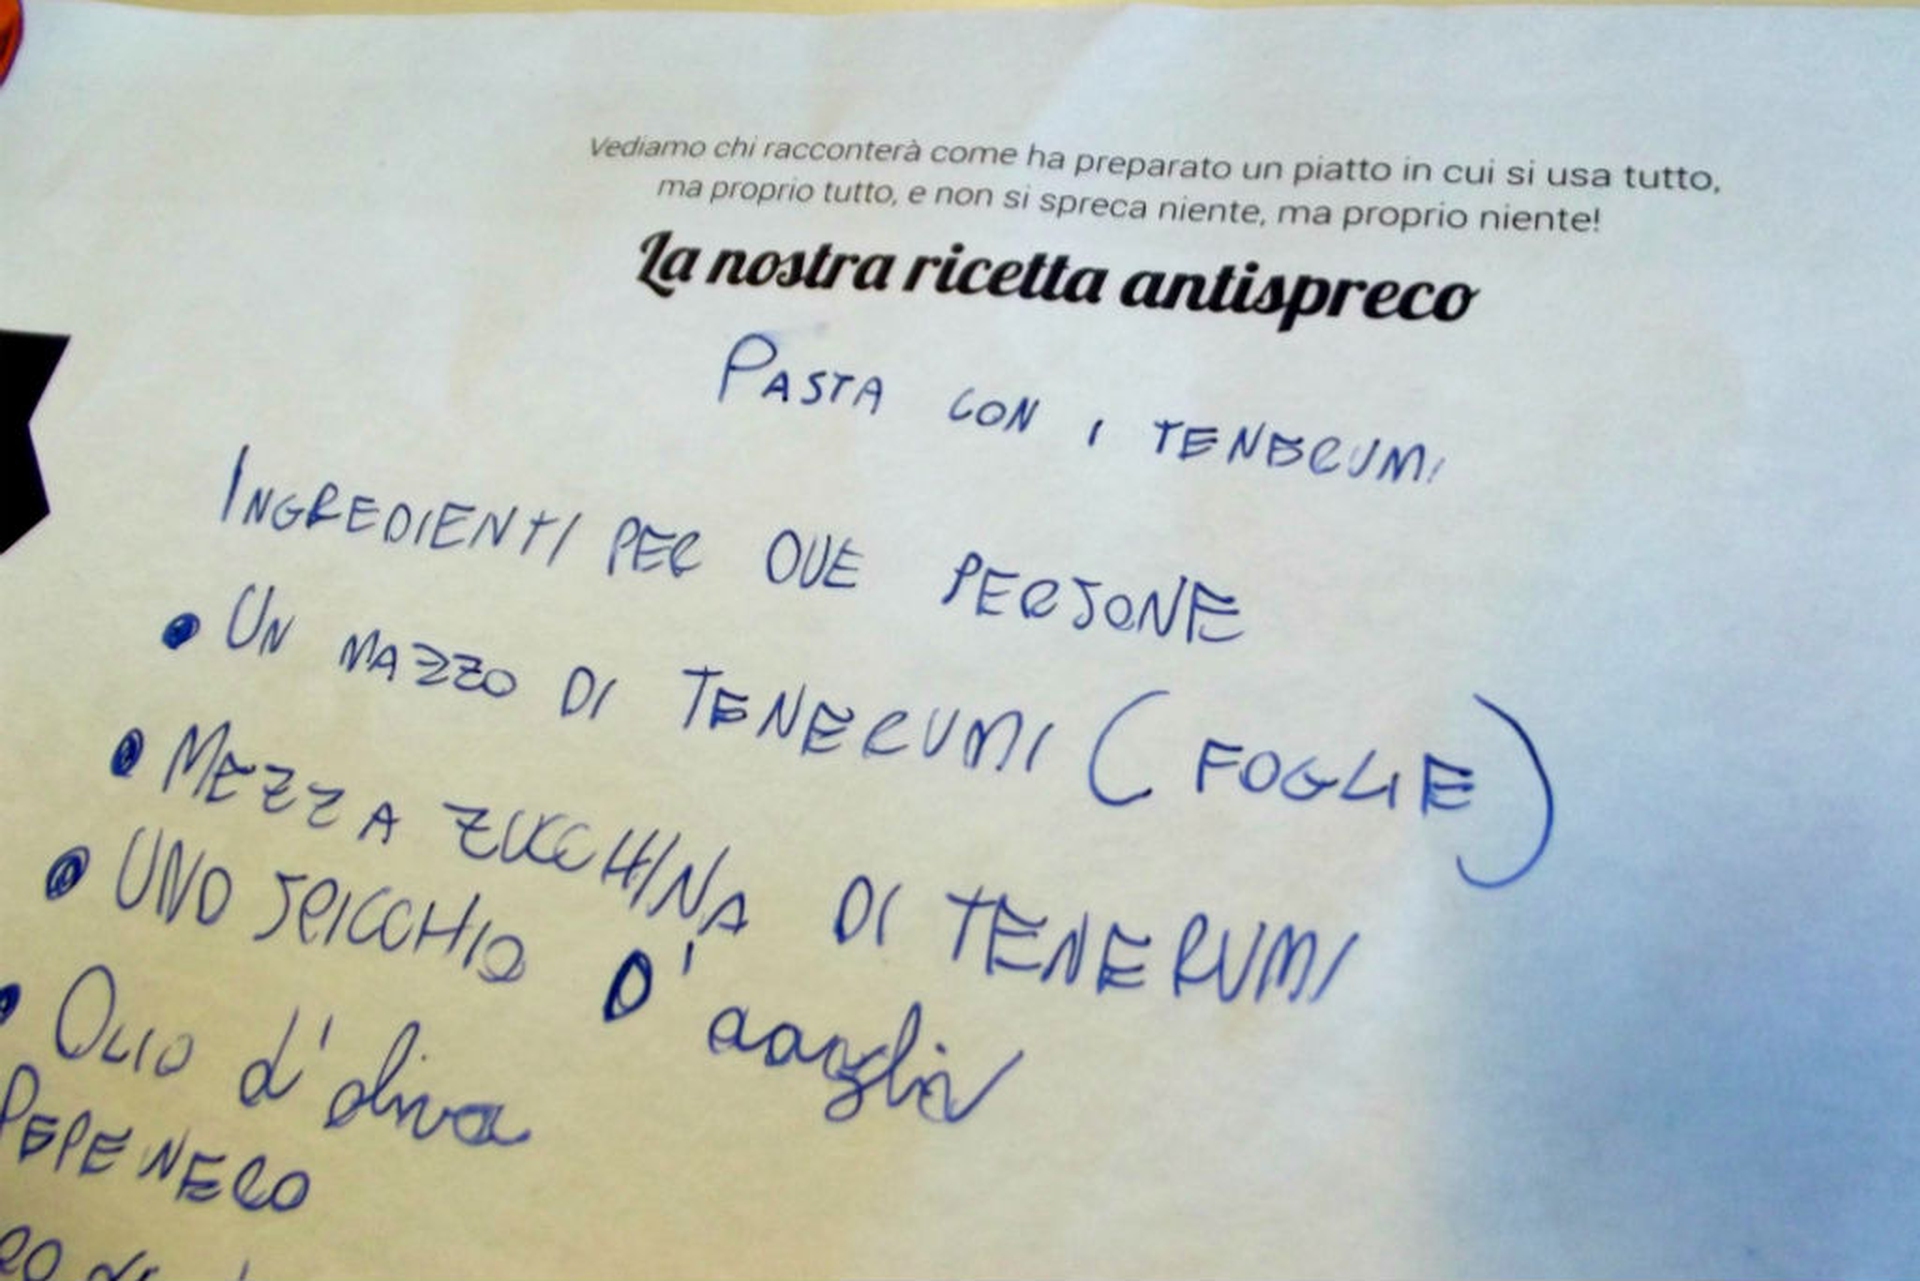 Vediamo chi racconterà come ha preparato un piatto in cui si usa tutto,
ma proprio tutto, e non si spreca niente, ma proprio niente!
La nostra ricetta antispreco
PASTA CON I TENERUMI
INGREDIENTI PER DUE PERSONE
• UN MAZZO DI TENERUMI (FOGLIE)
• MEZZA ZUCCHINA DI TENERUMI
• UNO SPICCHIO D'aaglio
• OLIO d'oliva
PEPE NERO